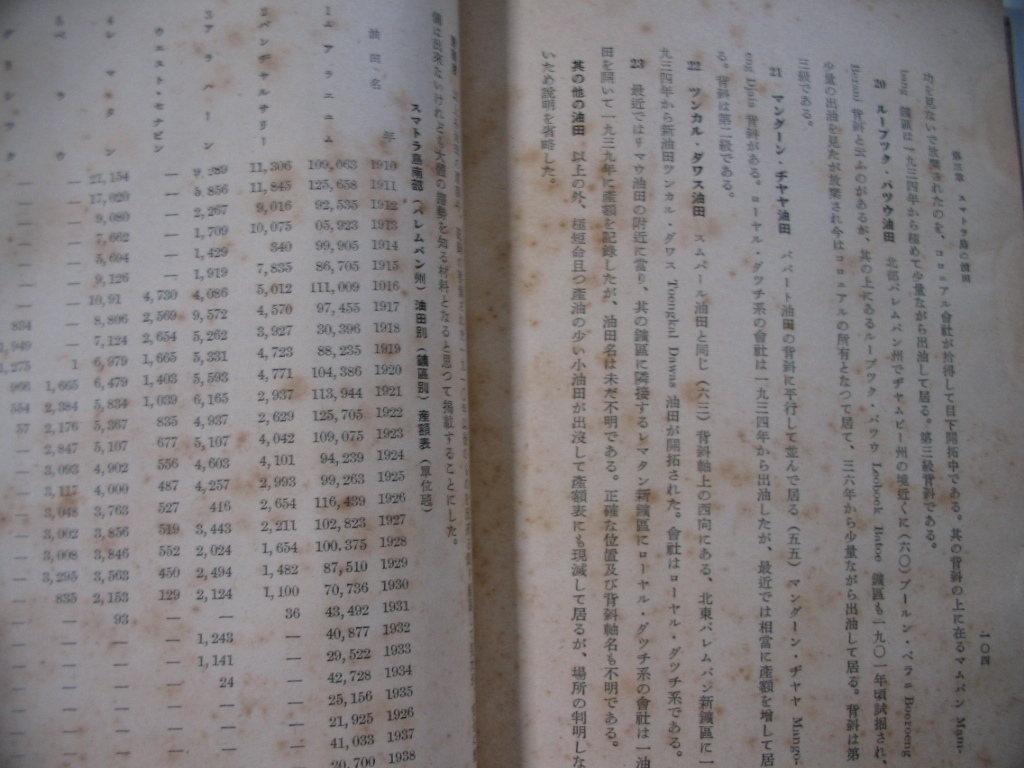 一〇四
均を見ないで放棄されたのを、コロニアル會社が拾得して目下開拓中である。其の背斜の上に在るマムバン Mam-
bang 鑛區は一九三四年から極めて少量ながら出油して居る。第三級背斜である。
20 ルーブツク・バツウ油田 北部パレムバン州でヂヤムビー州の境近くに(六〇)ブールン・ベラニ Boeroeng
Berani 背斜と云ふのがあるが、其の上にあるルーブツク・バツウ Loeboek Batoe 鑛區も一九〇一年頃試掘され、
少量の出油を見たが放棄され今はコロニアルの所有となつて居て、三六年から少量ながら出油して居る。背斜は第
三級である。
21 マングーン・ヂヤヤ油田 ババート油田の背斜に平行して並んで居る(五五)マングーン・ヂヤヤ Mango-
eng Djaja 背斜がある。ローヤル・ダツチ系の會社は一九三四年から出油したが、最近では相當に産額を増して居
る。背斜は第二級である。
22 ツンカル・ダワス油田 スムパール油田と同じ(六二)背斜軸上の西向にある、北東パレムバン新鑛區に一
九三四年から新油田ツンカル・ダワス Toengkal Dawas 油田が開拓された。會社はローヤル・ダツチ系である。
23 最近ではリマウ油田の附近に當り、其の鑛區に隣接するレマタン新鑛區にローヤル・ダツチ系の會社は一油
田を開いて一九三九年に産額を記録したが、油田名は未だ不明である。正確な位置及び背斜軸名も不明である。
其の他の油田 以上の外、極短命且つ産油の少い小油田が出沒して産額表にも現減して居るが、場所の判明しな
いため説明を省略した。
備は出來ないけれど大體の趨勢を知る材料となると思つて掲載することにした。
スマトラ島南部(パレムバン州)油田別(鑛區別)産額表(單位瓲)
油田名 年 1910 1911 1912 1913 1914 1915 1916 1917 1918 1919 1920 1921 1922 1923 1924 1925 1926 1927 1928 1929 1930 1931 1932 1933 1934 1935 1926 1937 1938
1 ムアラエニム 109,063 125,658 92,535 05,923 99,905 86,705 111,009 97,455 30,396 88,235 104,386 113,944 125,702 109,075 94,239 99,263 116,439 102,823 100,375 87,510 70,736 43,492 40,877 29,522 42,728 25,156 21,925 41,033 20,700
2 バンヂヤルサリー 11,306 11,845 9,016 10,075 340 7,835 5,012 4,570 3,927 4,723 4,771 2,937 2,629 4,042 4,101 2,993 2,654 2,211 1,654 1,482 1,100 36 — — — — — —
3 アラハーン 9,389 5,856 2,267 1,709 1,429 1,919 4,086 9,572 5,262 5,331 5,593 6,165 4,937 5,107 4,603 4,257 416 3,443 2,024 2,494 2,124 — 1,243 1,141 24 — — —
ウエスト・セナビン — — — — — — 4,730 2,569 2,654 1,665 1,403 1,039 835 677 556 487 527 519 552 450 129 — — — — — —
4 レマタン 21,154 17,020 9,080 7,662 5,694 9,126 10,91 8,806 7,124 6,979 6,479 5,834 5,367 5,107 4,902 4,000 3,763 3,856 3,846 3,563 2,153 93 — — — — —
1 1,665 2,384 2,176 2,847 3,093 3,117 3,048 3,002 3,008 3,295 835 — — — — —
834 1,949 1,275 966 554 57